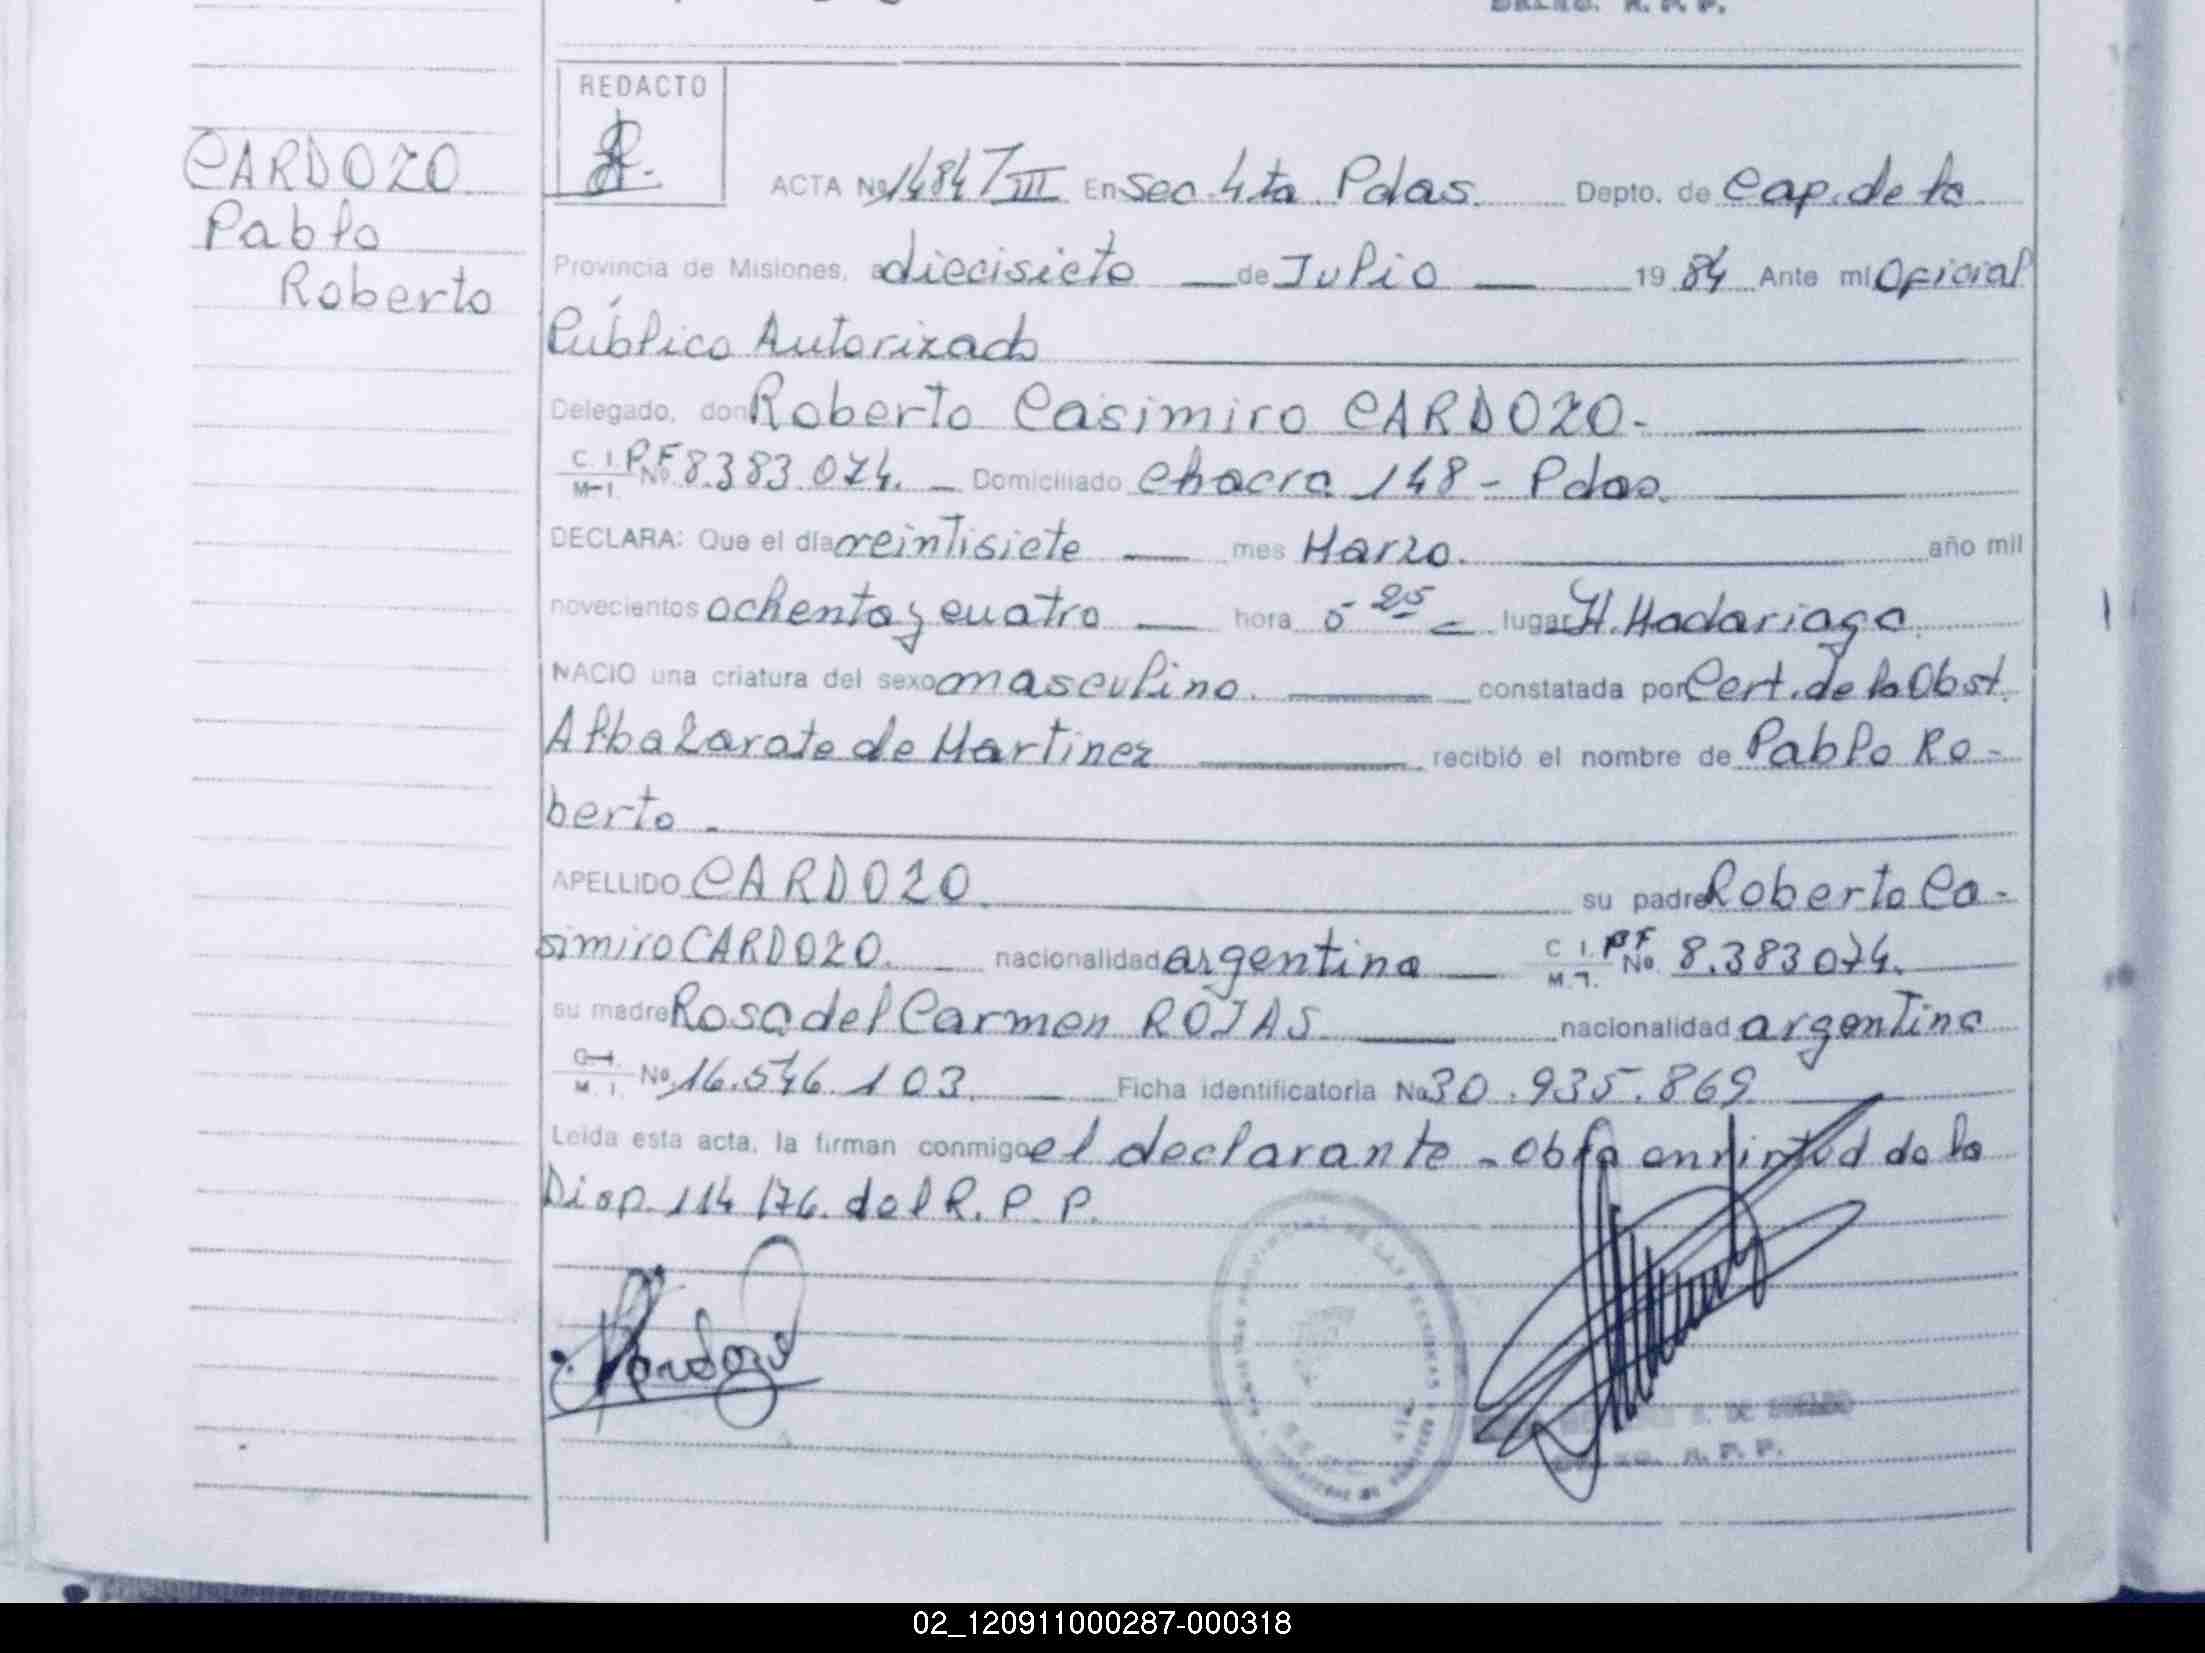 DELEG. R. P. P.
REDACTO
CARDOZO
Pablo
Roberto
ACTA No 1484/III En Sec. 4ta Pdas. Depto. de Cap. de la
Provincia de Misiones, a diecisiete — de Julio — 1984 Ante mí Oficial
Público Autorizado
Delegado, don Roberto Casimiro CARDOZO. —
C. I. P.F
M-I. No 8.383.074. — Domiciliado Chacra 148 - Pdas.
DECLARA: Que el día veintisiete — mes Marzo. — año mil
novecientos ochenta y cuatro — hora 5 25 — lugar H. Madariaga.
NACIO una criatura del sexo masculino. — constatada por Cert. de la Obst.
Alba Zarate de Martinez — recibió el nombre de Pablo Ro-
berto.
APELLIDO CARDOZO. — su padre Roberto Ca-
simiro CARDOZO. — nacionalidad argentina — C. I. P.F
M. I. No 8.383074.
su madre Rosa del Carmen ROJAS — nacionalidad argentina
C. I.
M. I. No 16.546.103. — Ficha identificatoria No 30.935.869
Leída esta acta, la firman conmigo el declarante - obra en virtud de la
Disp. 114/76. del R. P. P.
Cardozo
R. P. P.
02_120911000287-000318